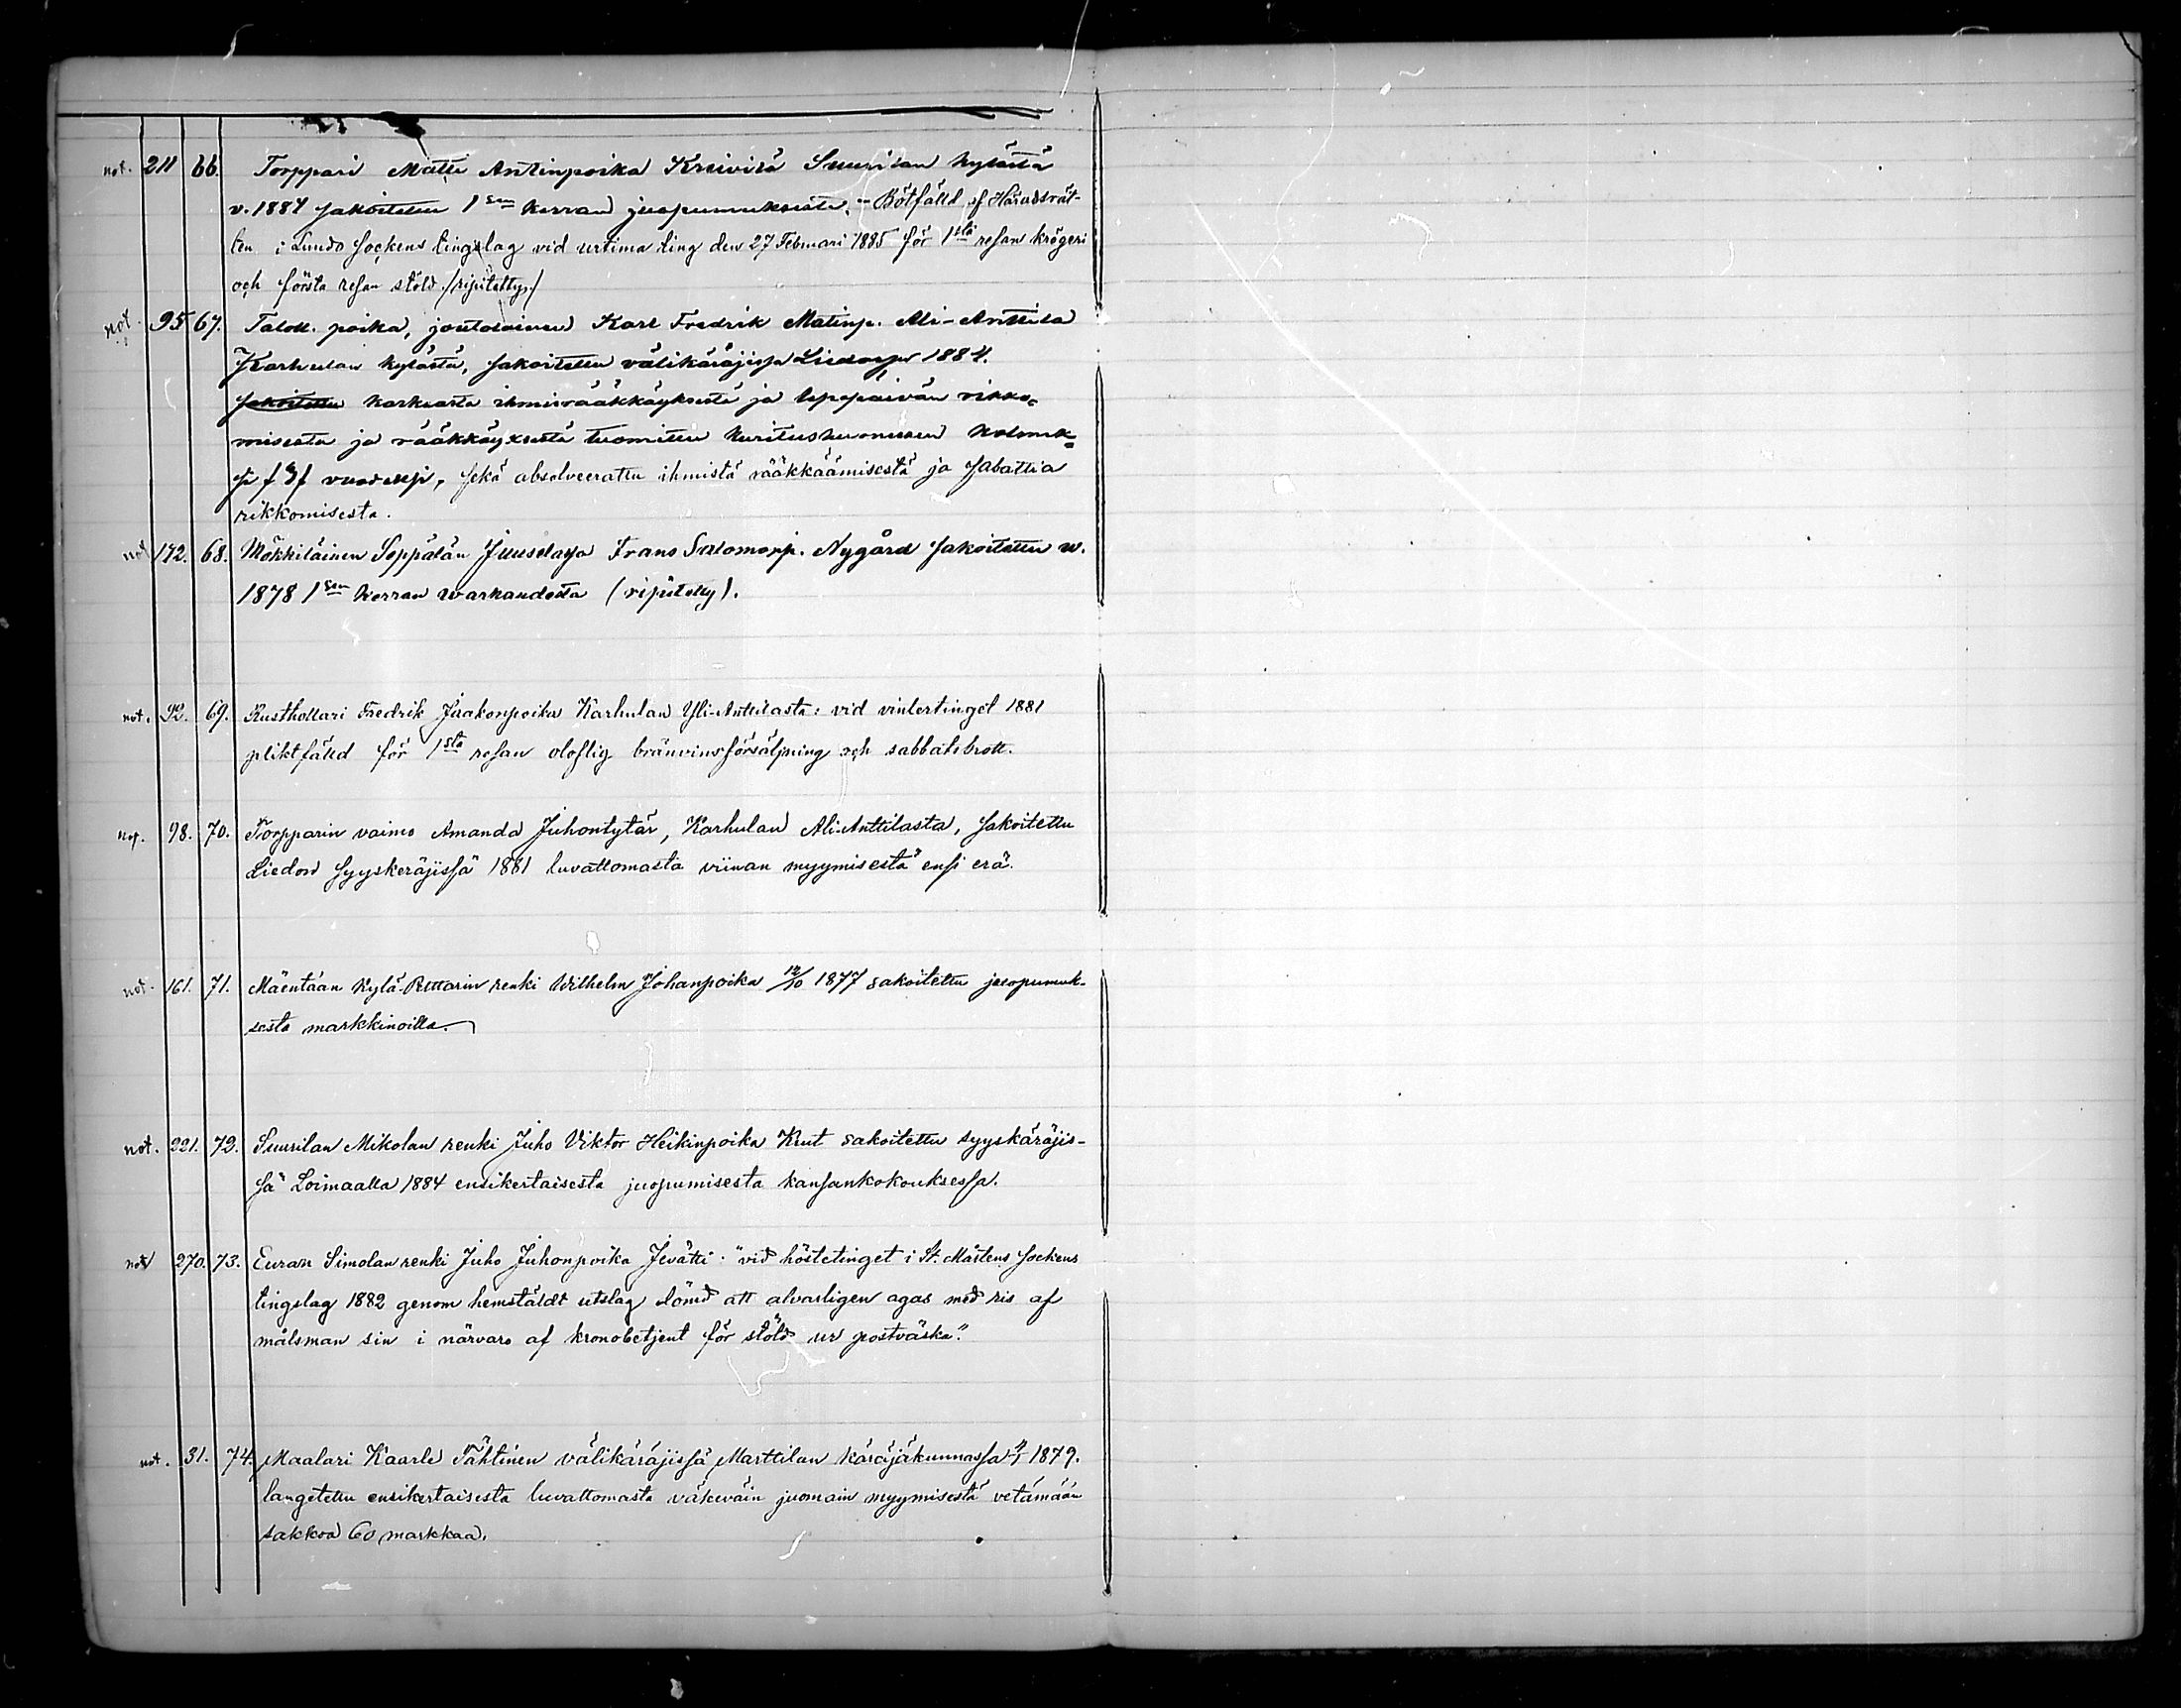 not. 211 66. Torppari Matti Antinpoika Kreivilä Suurilan kylästä
v. 1884 sakoitettu 1sen kerran juopumuksesta. - Bötfälld af Häradsrät-
ten i Lundo Sockens tingslag vid urtima ting den 27 Februari 1885 för 1sta resan krögeri
och första resan stöld. /ripitetty/
not. 95 67. Taloll. poika, joutolainen Karl Fredrik Matinp. Ali-Anttila
Karhulan kylästä, sakoitettu välikäräjissä Liedossa 1884.
sakoitettu karkeasta ihmisrääkkäyksestä ja lepopäivän rikko-
misesta ja rääkkäyxestä tuomittu kuritushuoneseen kolmek-
si /3/ vuodeksi, sekä absolveerattu ihmistä rääkkäämisestä ja sabattia
rikkomisesta.
not 172. 68. Mökkiläinen Seppälän Frans Salomonp. Nygård sakoitettu w.
1878 1sen kerran warkaudesta (ripitetty).
not. 92. 69. Rusthollari Fredrik Jaakonpoika Karhulan Yli-Anttilasta: vid vintertinget 1881
pliktfälld för 1sta resan oloflig bränvinsförsäljning och sabbatsbrott.
not. 98. 70. Torpparin vaimo Amanda Juhontytär, Karhulan Ali-Anttilasta, sakoitettu
Liedon syyskeräjissä 1881 luvattomasta viinan myymisestä ensi erä.
not. 161. 71. Mäentaan Kylä-Rettarin renki Wilhelm Johanpoika 12/10 1877 sakoitettu juopumuk-
sesta markkinoilla.
not. 221. 72. Suurilan Mikolan renki Juho Viktor Heikinpoika Krut sakoitettu syyskäräjis-
sä Loimaalla 1884 ensikertaisesta juopumisesta kansankokouksessa.
not 270. 73. Euran Simolan renki Juho Juhonpoika Jevätti: "vid höstetinget i St. Mårtens sockens
tingslag 1882 genom hemstäldt utslag dömd att alvarligen agas med ris af
målsman sin i närvaro af kronobetjent för stöld ur postväska."
not. 31. 74. Maalari Kaarle Tähtinen välikäräjissä Marttilan käräjäkunnassa 1879.
langetettu ensikertaisesta luvattomasta väkeväin juomain myymisestä vetämään
sakkoa 60 markkaa.